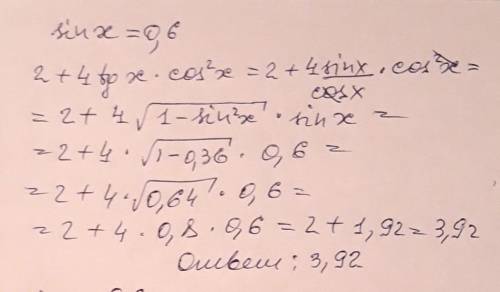 sin x = 0,6
2 + 4 tg x · cos²x = 2 + 4 sin x / cos x · cos²x =
= 2 + 4 √(1 - sin²x) · sin x =
= 2 + 4 · √(1 - 0,36) · 0,6 =
= 2 + 4 · √0,64 · 0,6 =
= 2 + 4 · 0,8 · 0,6 = 2 + 1,92 = 3,92
Ответ: 3,92